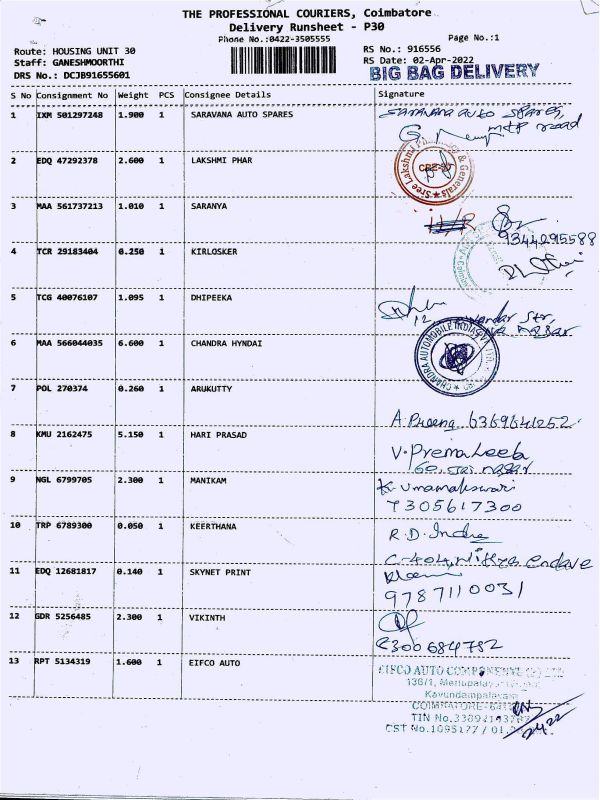 THE PROFESSIONAL COURIERS, Coimbatore
Delivery Runsheet - P30
Phone No.:0422-3505555
Page No.:1
Route: HOUSING UNIT 30
RS No.: 916556
Staff: GANESHMOORTHI
RS Date: 02-Apr-2022
DRS No.: DCJB91655601
BIG BAG DELIVERY
S No Consignment No Weight PCS Consignee Details Signature
1 IXM 501297248 1.900 1 SARAVANA AUTO SPARES Saravana auto spares,
mtp road
2 EDQ 47292378 2.600 1 LAKSHMI PHAR
Sree Lakshmi & Generals
3 MAA 561737213 1.010 1 SARANYA
9344295588
4 TCR 29183404 0.250 1 KIRLOSKER
5 TCG 40076107 1.095 1 DHIPEEKA
12, Str,
nagar
6 MAA 566044035 6.600 1 CHANDRA HYNDAI
CHANDRA AUTOMOBILE INDIA PVT. LTD.
7 POL 270374 0.260 1 ARUKUTTY
A. 6369641252
8 KMU 2162475 5.150 1 HARI PRASAD
V. Prema Leela
60, Jai nagar
9 NGL 6799705 2.300 1 MANIKAM K. Umamaheswari
7305617300
10 TRP 6789300 0.050 1 KEERTHANA
R.D. Indra
C-404, Nithya enclave
11 EDQ 12681817 0.140 1 SKYNET PRINT
9787110031
12 GDR 5256485 2.300 1 VIKINTH
6300684782
13 RPT 5134319 1.600 1 EIFCO AUTO
EIFCO AUTO
Kavundampalayam
COIMBATORE
TIN No.
CST No.1095177